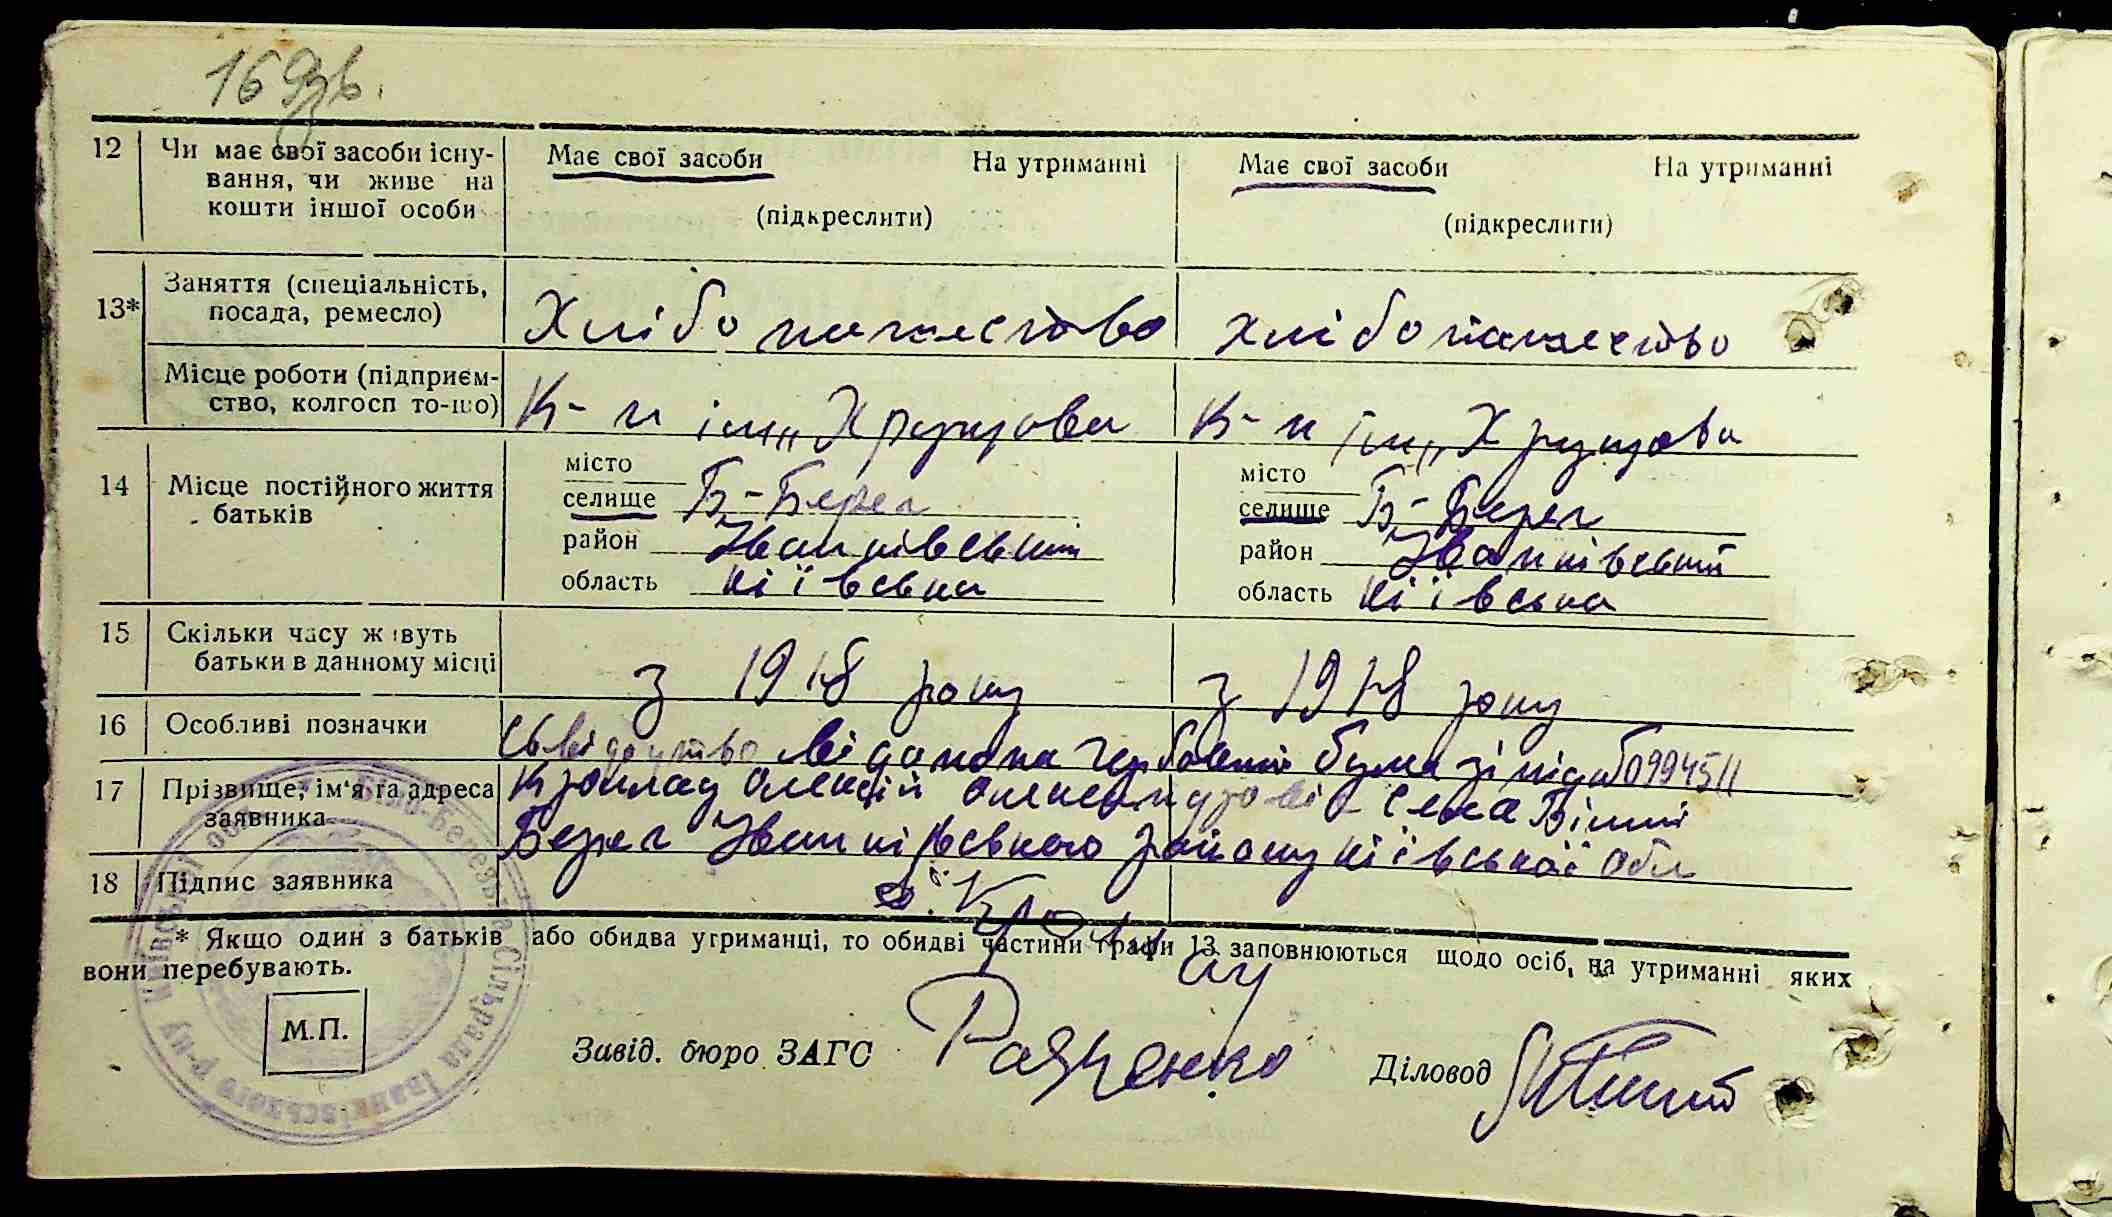 16 дзв.
12 Чи має свої засоби існу- Має свої засоби На утриманні Має свої засоби На утриманні
вання, чи живе на
кошти іншої особи (підкреслити) (підкреслити)
13* Заняття (спеціальність,
посада, ремесло) Хлібопашество хлібопашество
Місце роботи (підприєм-
ство, колгосп то-що) К-п ім„ Хрущова К-п ім„ Хрущова
14 Місце постійного життя
батьків
місто місто
селище Б-Берег селище Б-Берег
район Іванківський район Іванківський
область Кіівська область Кіівська
15 Скільки часу живуть
батьки в данному місці з 1918 року з 1918 року
16 Особливі позначки Сьвідоцтво відано на гербовій бумазі під
17 Прізвище, ім'я та адреса
заявника Олексій села Білий
Берег Іванківського району кіівської обл
18 Підпис заявника
* Якщо один з батьків або обидва утриманці, то обидві частини графи 13 заповнюються щодо осіб, на утриманні яких
вони перебувають.
М.П.
Завід. бюро ЗАГС Діловод
Біло-Березька Сільрада Іванківського р-ну Київської обл.